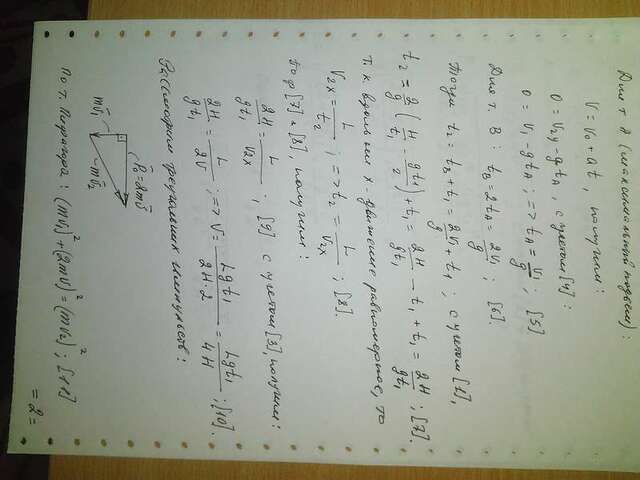 Для т. А (максимальный подъем):
V = V₀ + at, получим:
0 = V₂y - gtA, с учетом [4]:
0 = V₁ - gtA; => tA = V₁/g; [5]
Для т. В: tB = 2tA = 2V₁/g; [6].
Тогда t₂ = tB + t₁ = 2V₁/g + t₁; с учетом [1],
t₂ = 2/g (H/t₁ - gt₁/2) + t₁ = 2H/gt₁ - t₁ + t₁ = 2H/gt₁; [7].
Т.к вдоль оси x - движение равномерное, то
V₂x = L/t₂; => t₂ = L/V₂x; [8].
Из [7] и [8], получим:
2H/gt₁ = L/V₂x; [9] с учетом [3], получим:
2H/gt₁ = L/2V; => V = Lgt₁/2H·2 = Lgt₁/4H; [10].
Рассмотрим треугольник импульсов:
P₀ = 2mV
mV₁
mV₂
По т. Пифагора: (mV₁)² + (2mV)² = (mV₂)²; [11]
= 2 =